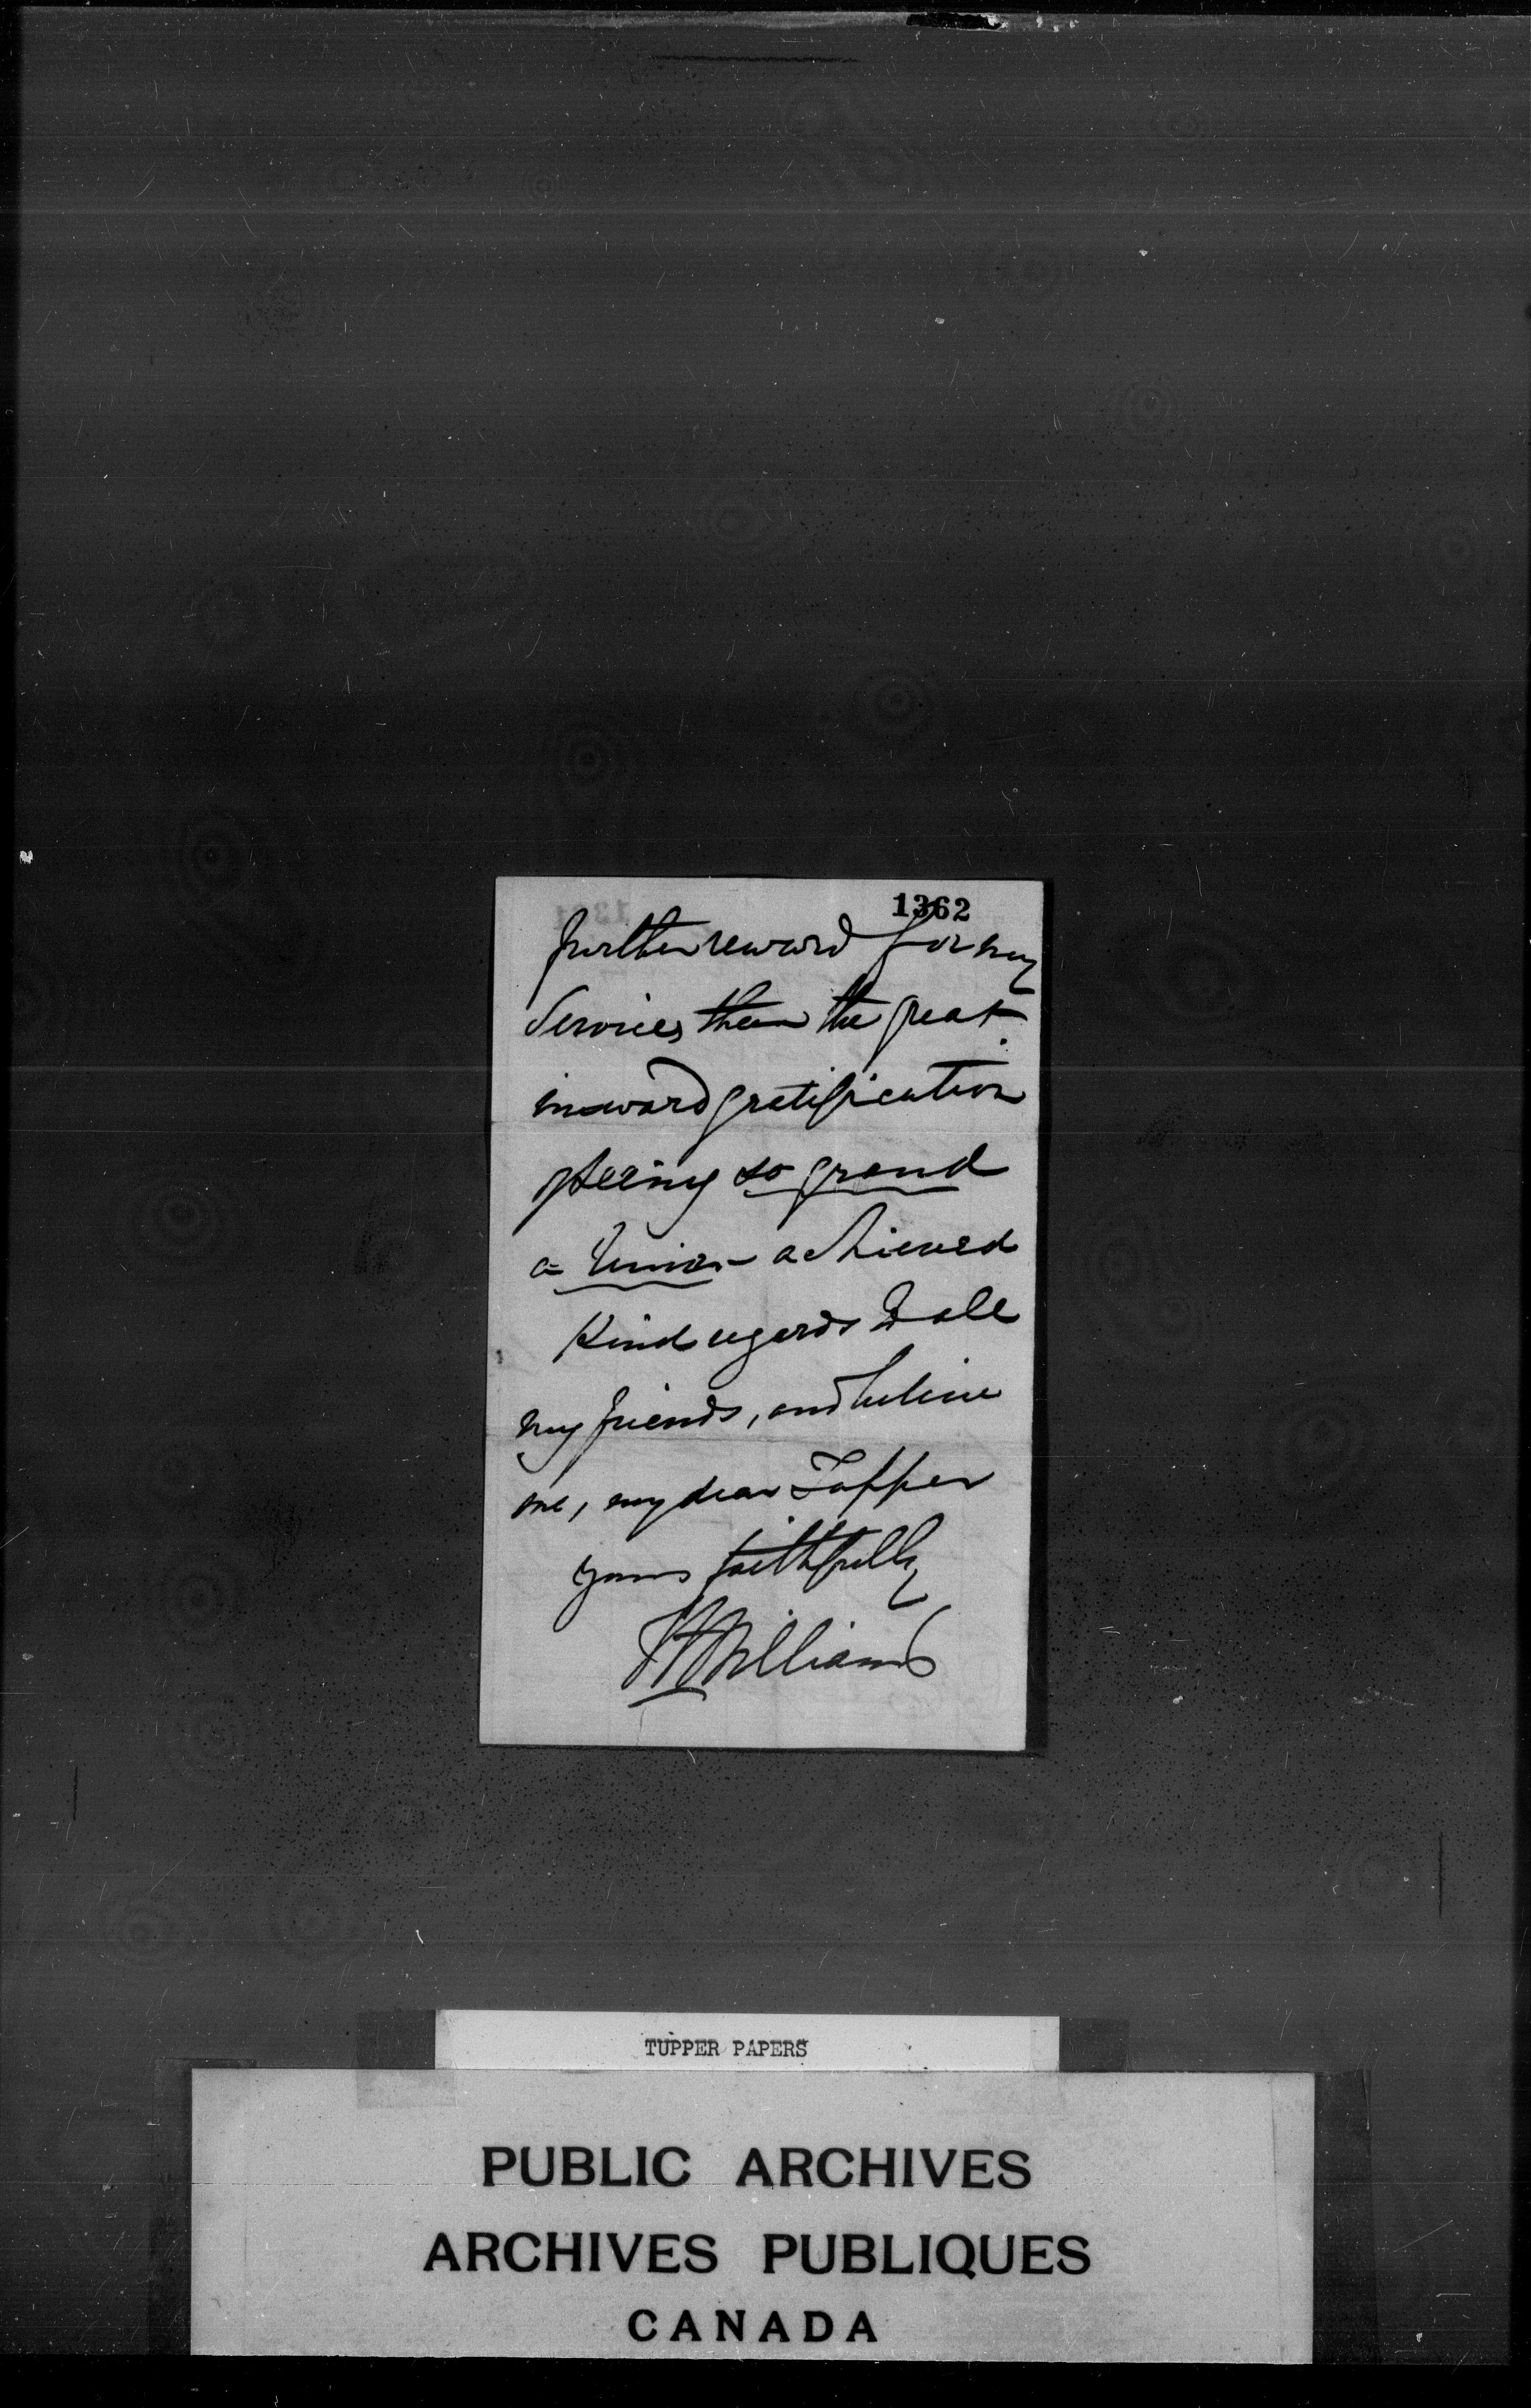 1362
further reward for my
Services than the great
inward gratification
of seeing so grand
a Union achieved
Kind regards to all
my friends, and believe
me, my dear Tupper
yours faithfully
WFWilliams
TUPPER PAPERS
PUBLIC ARCHIVES
ARCHIVES PUBLIQUES
CANADA